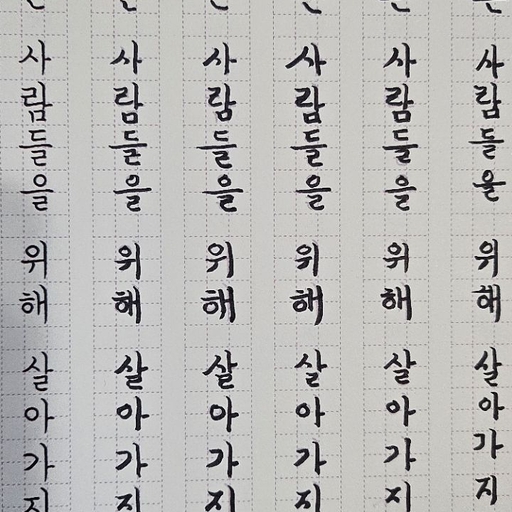 사람들을 위해 살아가지
사람들을 위해 살아가지
사람들을 위해 살아가지
사람들을 위해 살아가지
사람들을 위해 살아가지
사람들을 위해 살아가지